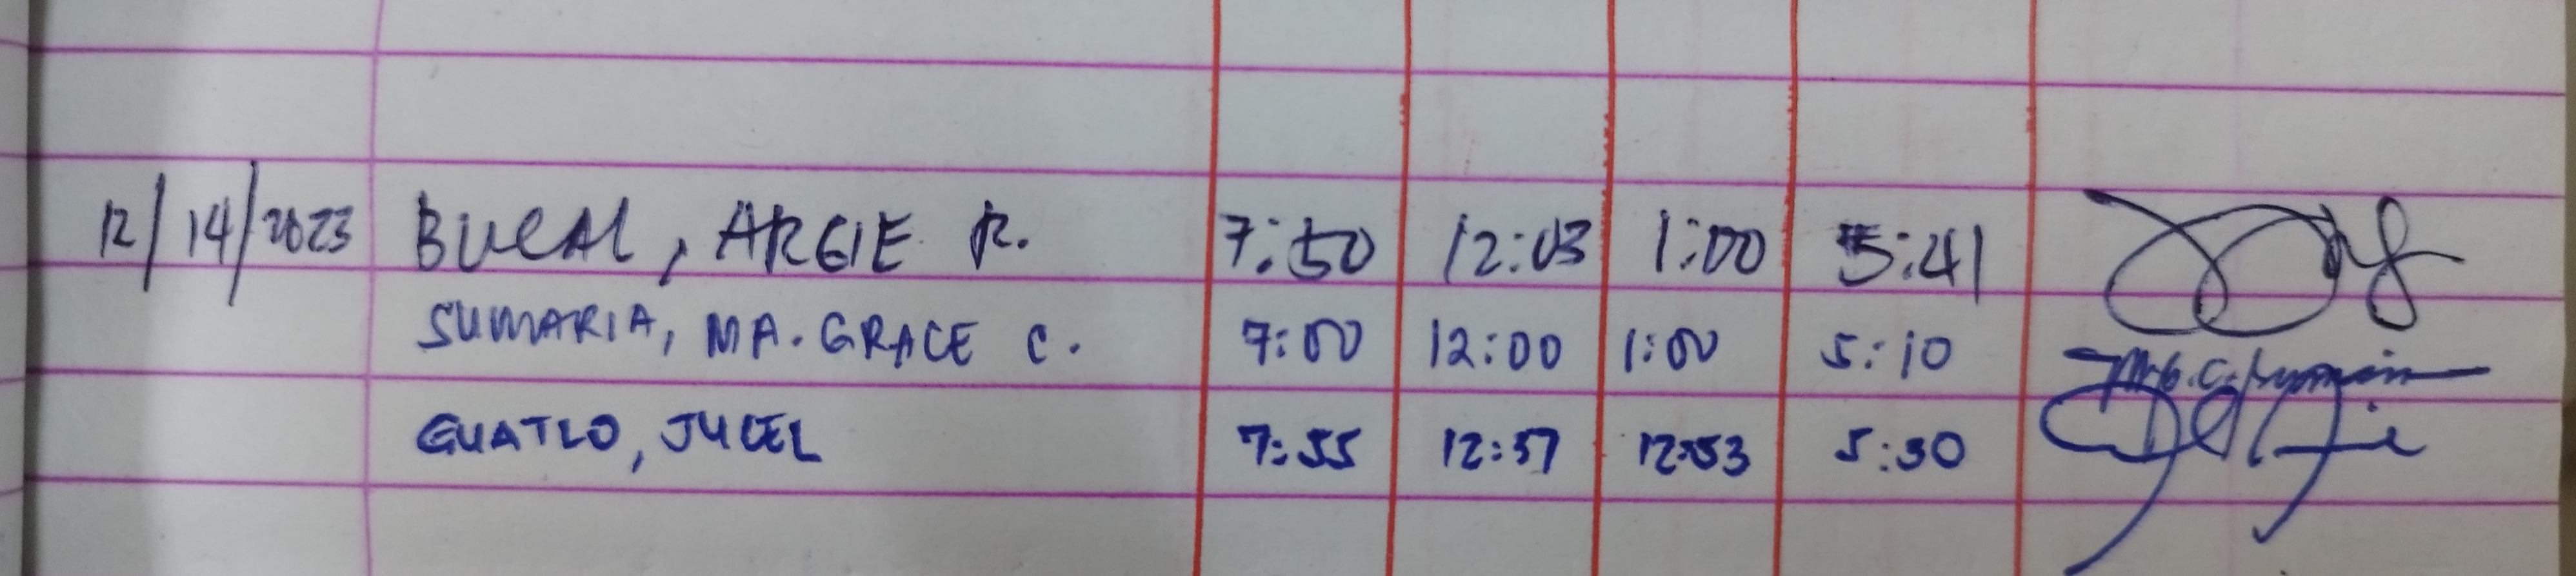 12/14/2023 BUCAL, ARGIE R. 7:50 12:03 1:00 5:41
SUMARIA, MA. GRACE C. 7:00 12:00 1:00 5:10
GUATLO, JUCEL 7:55 12:37 12:53 5:30